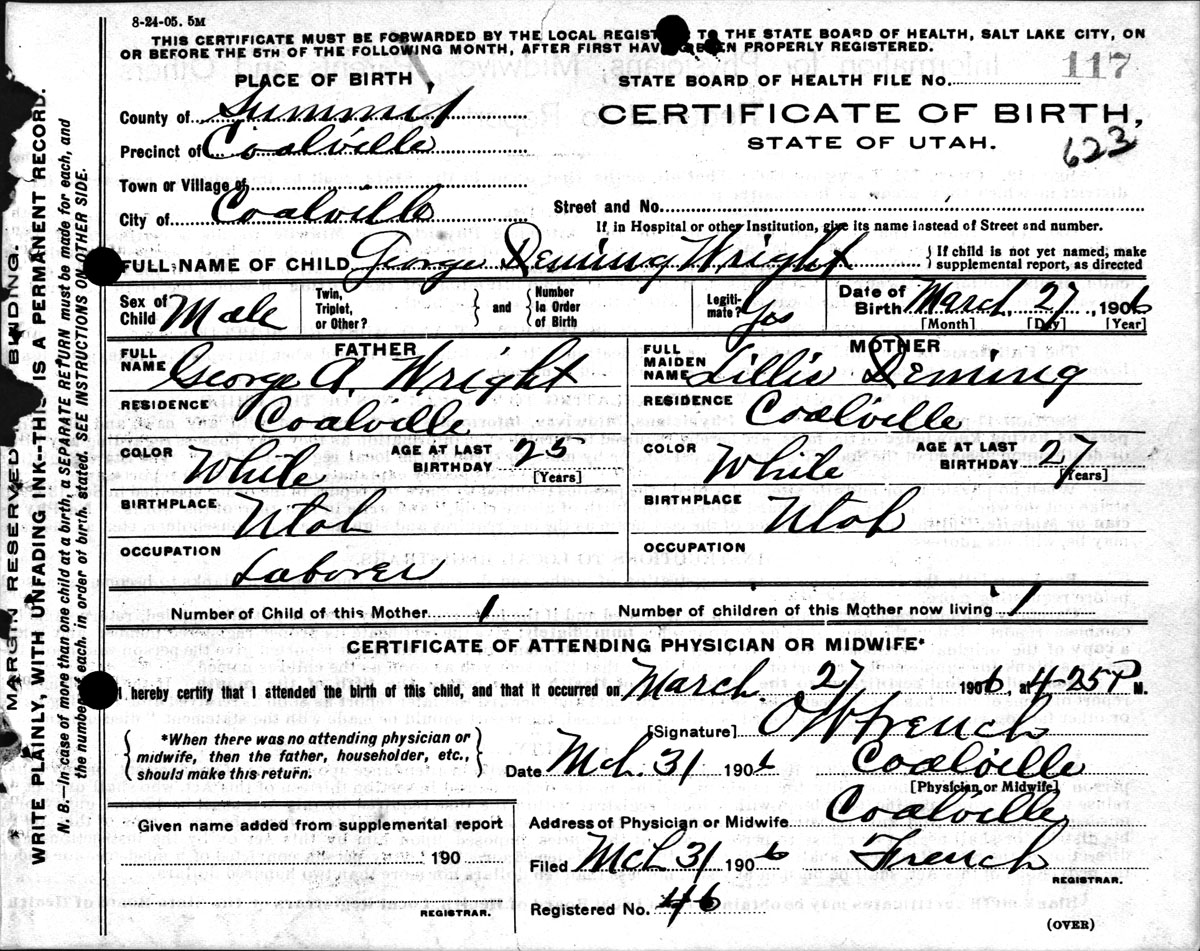 8-24-05. 5M
THIS CERTIFICATE MUST BE FORWARDED BY THE LOCAL REGIST TO THE STATE BOARD OF HEALTH, SALT LAKE CITY, ON
OR BEFORE THE 5TH OF THE FOLLOWING MONTH, AFTER FIRST HAVING BEEN PROPERLY REGISTERED.
PLACE OF BIRTH
STATE BOARD OF HEALTH FILE No. 117
County of Summit
CERTIFICATE OF BIRTH,
Precinct of Coalville
STATE OF UTAH.
623
Town or Village of
City of Coalville
Street and No.
If in Hospital or other Institution, give its name instead of Street and number.
FULL NAME OF CHILD George Deming Wright
{ If child is not yet named, make
supplemental report, as directed
Sex of Child Male
Twin, Triplet, or Other? { } and { Number in Order of Birth
Legiti-mate? Yes
Date of Birth March 27, 1906
[Month] [Day] [Year]
FATHER
FULL NAME George A. Wright
RESIDENCE Coalville
COLOR White
AGE AT LAST BIRTHDAY 25
[Years]
BIRTHPLACE Utah
OCCUPATION Laborer
MOTHER
FULL MAIDEN NAME Lillis Deming
RESIDENCE Coalville
COLOR White
AGE AT LAST BIRTHDAY 27
[Years]
BIRTHPLACE Utah
OCCUPATION
Number of Child of this Mother 1 Number of children of this Mother now living 1
CERTIFICATE OF ATTENDING PHYSICIAN OR MIDWIFE*
I hereby certify that I attended the birth of this child, and that it occurred on March 27 1906, at 4-25 P M.
{ *When there was no attending physician or
midwife, then the father, householder, etc.,
should make this return. }
[Signature] O W French
Date Mch. 31 1906 Coalville
[Physician or Midwife]
Given name added from supplemental report
190
REGISTRAR.
Address of Physician or Midwife Coalville
Filed Mch 31 1906 French
REGISTRAR.
Registered No. 46
(OVER)
MARGIN RESERVED FOR BINDING.
WRITE PLAINLY, WITH UNFADING INK--THIS IS A PERMANENT RECORD.
N. B.—In case of more than one child at a birth, a SEPARATE RETURN must be made for each, and
the number of each, in order of birth, stated. SEE INSTRUCTIONS ON OTHER SIDE.